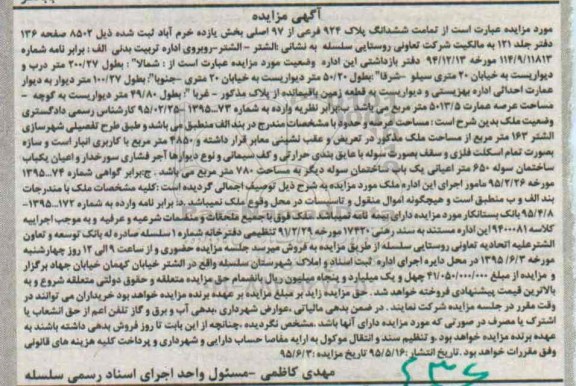 آگهی مزایده
مورد مزایده عبارت است از تمامت ششدانگ پلاک ۹۲۴ فرعی از ۹۷ اصلی بخش یازده خرم آباد ثبت شده ذیل ۸۵۰۲ صفحه ۱۳۶
دفتر جلد ۱۲۱ به مالکیت شرکت تعاونی روستایی سلسله به نشانی :الشتر - الشتر-روبروی اداره تربیت بدنی الف : برابر نامه شماره
۱۱۴/۹/۱۱۸۱۳ مورخه ۹۴/۱۲/۱۳ دفتر بازداشتی این اداره وضعیت مورد مزایده عبارت است از : شمالا" : بطول ۲۷/۰۰ متر درب و
دیواریست به خیابان ۲۰ متری سیلو -شرقا" :بطول ۵۰/۲۰ متر دیواریست به خیابان ۲۰ متری -جنوبا": بطول ۱۰۰/۲۷ متر دیوار به دیوار
عمارت احداثی اداره بهزیستی و دیواریست به قطعه زمین باقیمانده از پلاک مذکور - غربا ": بطول ۴۹/۸۰ متر دیواریست به کوچه -
مساحت عرصه عمارت ۵۰۱۳/۵ متر مربع می باشد. ب-برابر نظریه وارده به شماره ۷۳-۱۳۹۵ ۹۵/۰۲/۲۵ کارشناس رسمی دادگستری
وضعیت ملک بدین شرح است: مساحت عرصه و حدود با مشخصات مندرج در بند الف منطبق می باشد و طبق طرح تفصیلی شهرسازی
الشتر ۱۶۳ متر مربع از مساحت ملک مذکور در تعریض و عقب نشینی معابر قرار داشته و ۴۸۵۰ متر مربع با کاربری انبار است و سازه
بصورت تمام اسکلت فلزی و سقف بصورت سوله با عایق بندی حرارتی و کف سیمانی و نوع دیوارها آجر فشاری سورخدار و اعیان یکباب
ساختمان سوله ۶۵۰ متر اعیانی یک باب ساختمان سوله دیگر به مساحت ۷۸۰ متر مربع می باشد . ج:برابر گواهی شماره ۷۴-۱۳۹۵
مورخه ۹۵/۲/۲۶ مامور اجرای این اداره ملک مورد مزایده به شرح ذیل توصیف اجمالی گردیده است :کلیه مشخصات ملک با مندرجات
بند الف و ب منطبق است و هیچگونه اموال منقول و تاسیسات در محل وقوع ملک نمیباشد .د: برابر نامه وارده به شماره ۱۷۲-۱۳۹۵
۹۵/۴/۸ بانک بستانکار مورد مزایده دارای بیمه نامه نمیباشد .ملک فوق با جمیع ملحقات و منضمات شرعیه و عرفیه و به موجب اجراییه
کلاسه ۹۴۰۰۰۸۱ این اداره مستند به سند رهنی ۱۷۴۲۰ مورخه ۹۷/۲/۲۹ تنظیمی دفترخانه شماره ۱ سلسله صادره له بانک توسعه و تعاون
الشتر علیه اتحادیه تعاونی روستایی سلسله از طریق مزایده به فروش میرسد جلسه مزایده حضوری و از ساعت ۹ الی ۱۲ روز چهارشنبه
مورخه ۱۳۹۵/۶/۳ در محل دایره اجرای اداره ثبت اسناد و املاک شهرستان سلسله واقع در الشتر خیابان کهمان خیابان جهاد برگزار
و مزایده از مبلغ ۴۱/۰۵۰/۰۰۰/۰۰۰ چهل و یک میلیارد و پنجاه میلیون ریال بانضمام حق مزایده متعلقه و حقوق دولتی متعلقه شروع و به
بالاترین قیمت پیشنهادی فروخته خواهد شد. حق مزایده زاید بر مبلغ مزایده بر عهده برنده مزایده خواهد بود خریداران می توانند در
وقت مقرر در جلسه مزایده شرکت نمایند . در ضمن بدهی مالیاتی ،عوارض شهرداری ،بدهی آب و برق و گاز تلفن اعم از حق انشعاب یا
اشتراک یا مصرف در صورتی که مورد مزایده دارای آنها باشد ،مشخص نگردیده ،چنانچه از این بابت تا روز فروش بدهی داشته باشند به
عهده برنده مزایده خواهد بود .و تنظیم سند و انتقال موکول به ارایه مفاصا حساب دارایی و شهرداری و پرداخت کلیه هزینه های قانونی
وفق مقررات خواهد بود .تاریخ انتشار :۹۵/۵/۱۶ تاریخ مزایده :۹۵/۶/۳
مهدی کاظمی -مسئول واحد اجرای اسناد رسمی سلسله